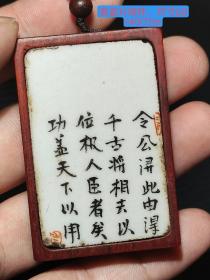 令公浔此由浔
千古将相夫以
位极人臣者矣
功盖天下以用